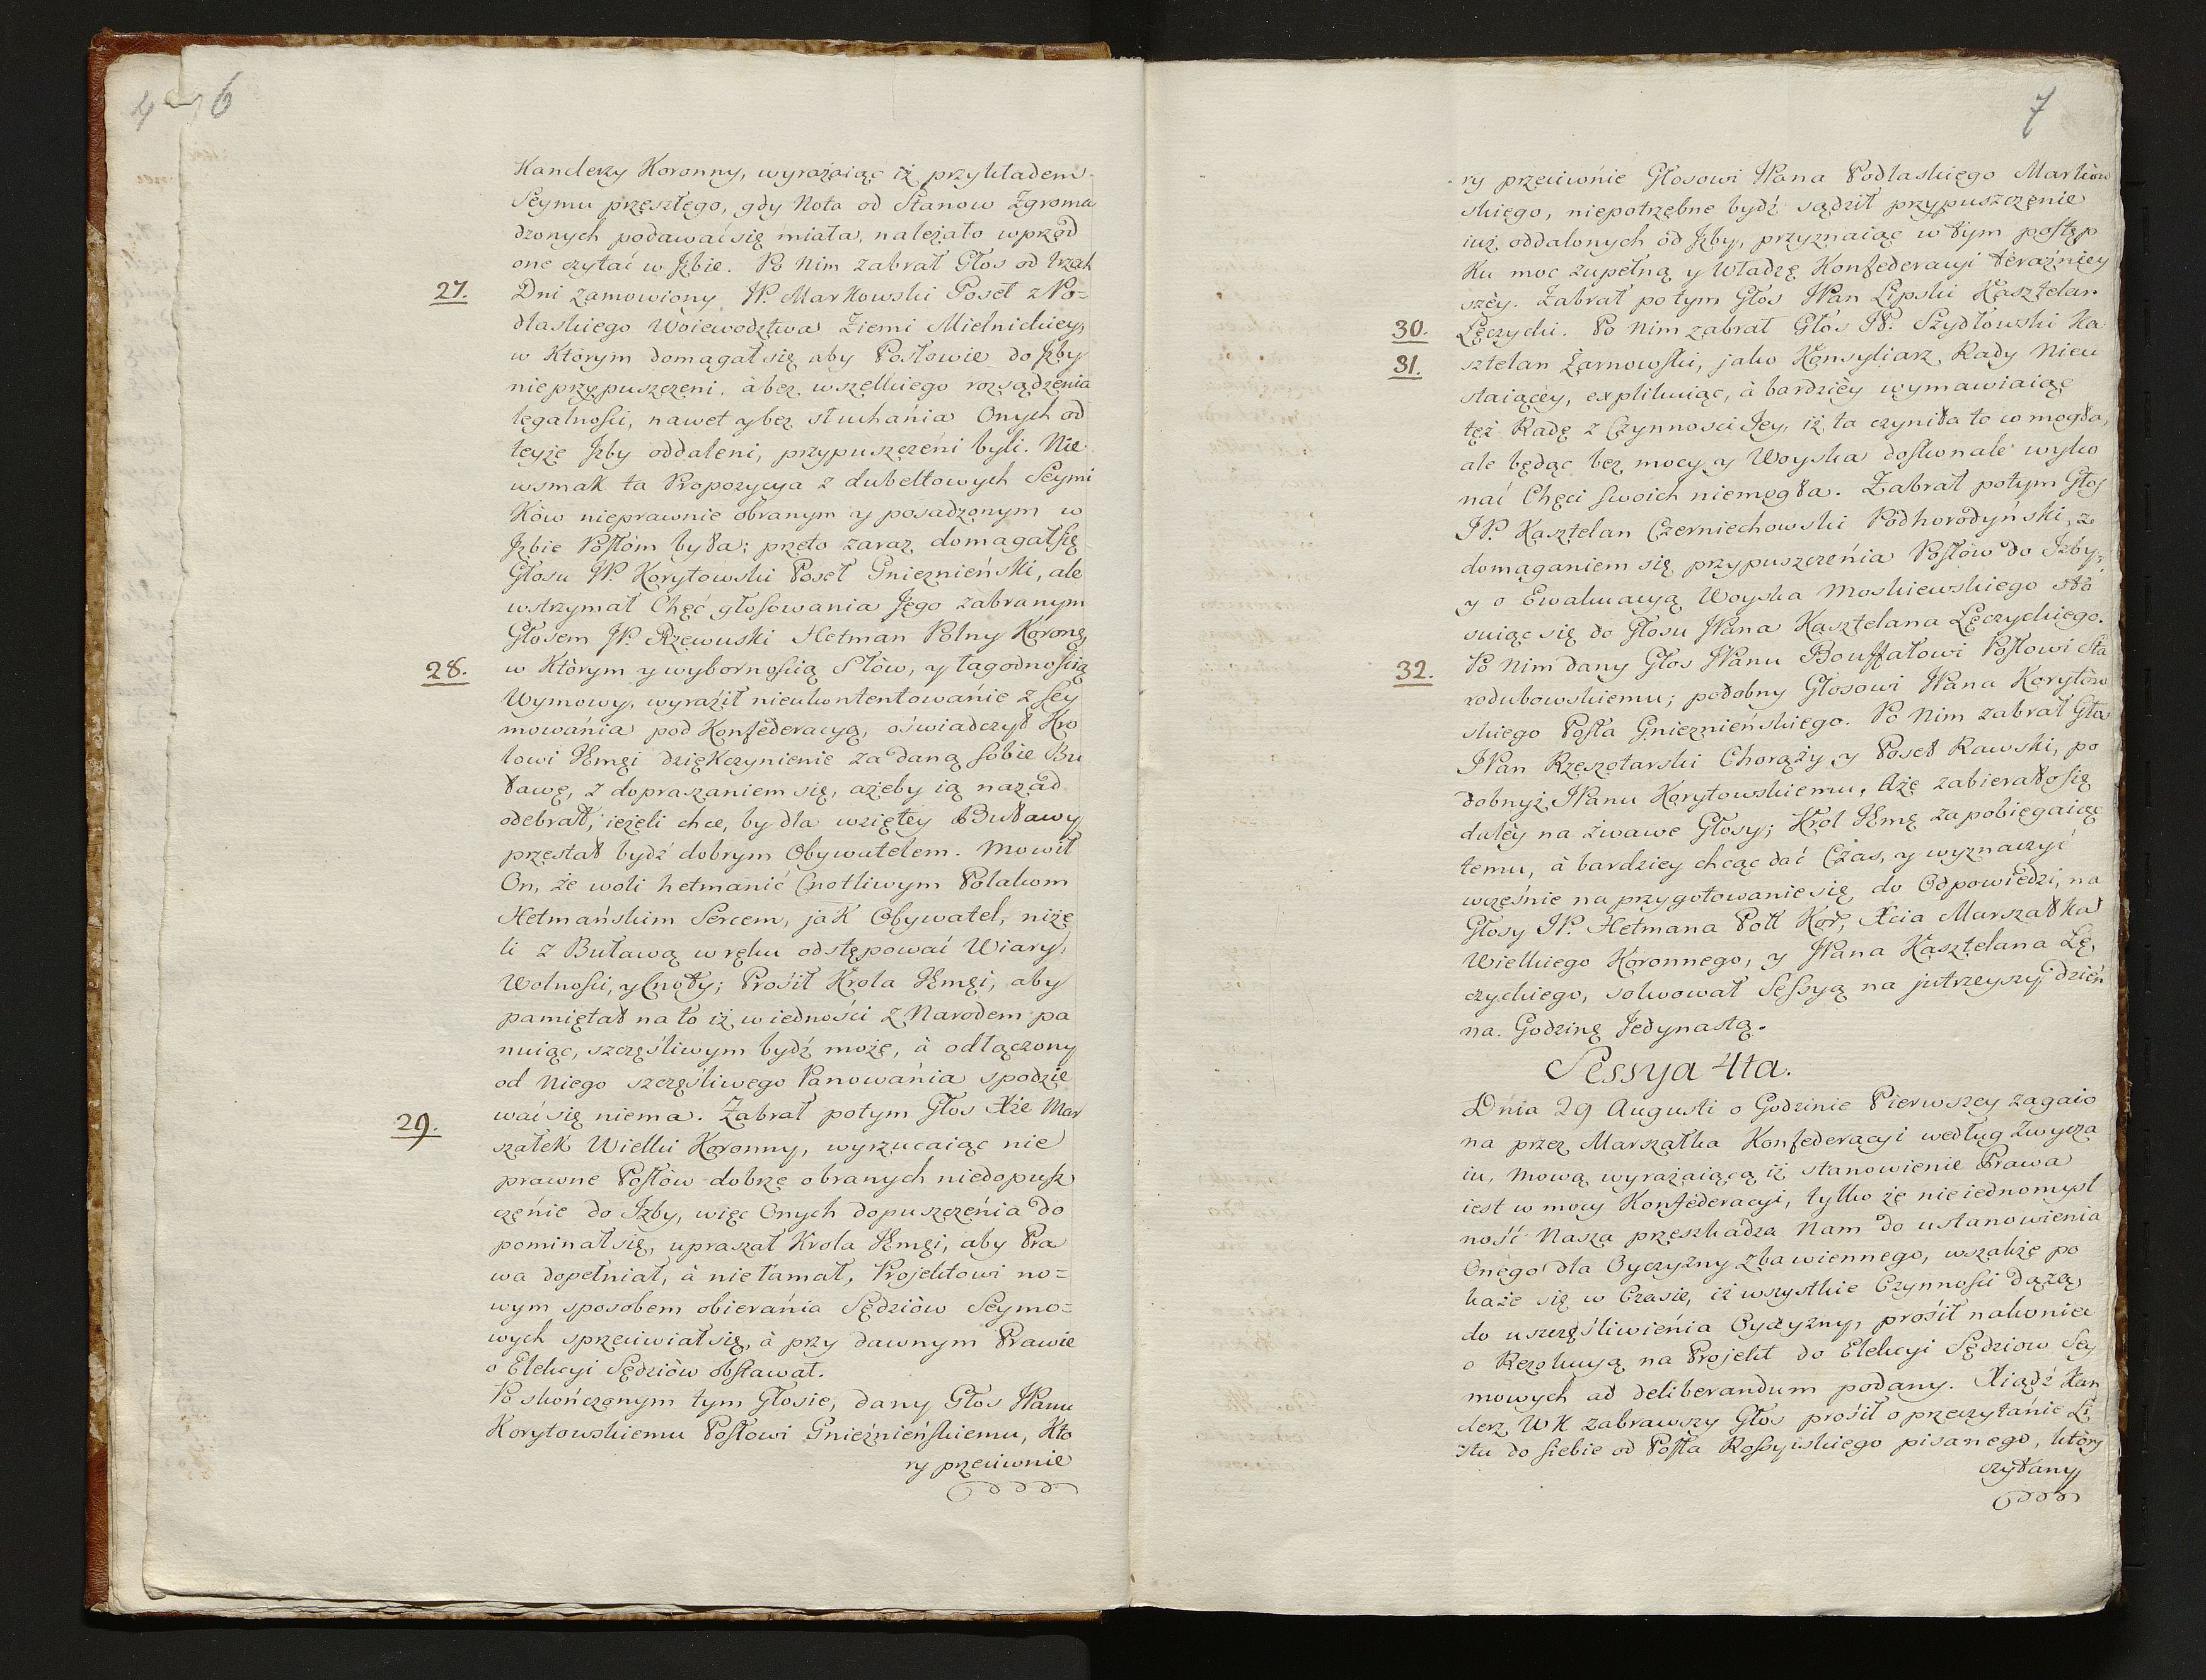 4
6
Kanclerzy Koronny, wyrażaiąc iż przykładem
Seymu przeszłego, gdy Nota od Stanow Zgroma
dzonych podawać się miała, należało wprzod
one czytać w Jzbie. Po Nim zabrał Głos od trzech
27. Dni zamowiony JP. Markowski Poseł z Po=
dlaskiego Woiewodztwa Ziemi Mielnickiey,
w Którym domagał się aby Posłowie do Jzby
nieprzypuszczeni, à bez wszelkiego rozsądzenia
legalności, nawet y bez słuchánia Onych od
teyże Jzby oddaleni, przypuszczeni byli. Nie
wsmak ta Propozycya z dubeltowych Seymi
Ków nieprawnie obranym y posadzonym w
Jzbie Posłóm była; przeto zaraz domagał się
Głosu JP. Korytowski Poseł Gnieznieński, ale
wstrzymał Chęć głosowania Jego zabranym
Głosem JP. Rzewuski Hetman Polny Koronę,
28. w Którym y wybornością Słów, y łagodnością
Wymowy, wyraźił nieukontentowańie z Sey
mowánia pod Konfederacyą, oświadczył Kro
lowi Jemgi dzięKczynienie za daną sobie Bu
ławę, z dopraszaniem się, ażeby ią nazad
odebrał, ieżeli chce, by dla wzięłey Buławy
przestał bydź dobrym Obywatelem. Mowił
On, że woli hetmanić Cnotliwym Polakom
Hetmańskim Sercem, jaK Obywatel, niże
li z Buławą w ręku odstępować Wiary,
Wolności, y Cnoty; Prośił Krola Jemgi, aby
pamiętał na to iż w iedności z Narodem pa
nuiąc, szczęśliwym bydź może, à odłączony
od Niego szczęśliwego Panowánia spodzie
29. wać się niema. Zabrał potym Głos Xże Mar
szałek Wielki Koronny, wyrzucaiąc nie
prawne Posłów dobrze obranych niedopusz
częńie do Jzby, więc Onych dopuszczeńia do
pominał się, upraszał Krola Jemgi, aby Pra
wa dopełniał, à nie łamał, Projektowi no=
wym sposobem obieránia Sędziów Seymo=
wych sprzeciwiał się, à przy dawnym Prawie
o Elekcyi Sędziów obstawał.
Po skończonym tym Głosie, dany Głos JPanu
Korytowskiemu Posłowi Gnieźnieńskiemu, Kto
ry przeciwnie
7
ry przeciwńie Głosowi JPana Podlaskiego Markow
skiego, niepotrzebne bydź sądził przypuszczęnie
iuż oddalonych od Jzby, przyznaiąc w tym postęp
Ku moc zupełną y Władzę Konfederacyi teraźniey
széy. Zabrał potym Głos JPan Lipski Kasztelan
30. Łęczycki. Po Nim zabrał Głos JP. Szydłowski Ka
31. sztelan Żarnowski, jako Konsyliarz Rady Nieu
staiącéy, explikuiąc, à bardziéy wymawiaiąc
tęż Radę z Czynności Jey, iż ta czyniła to co mogła,
ale będąc bez mocy y Woyska doskonale wyko
nać Chęci swoich niemogła. Zabrał potym Głos
JP. Kasztelan Czerniechowski Podhorodyński, z
domaganiem się przypuszczeńia Posłów do Jzby,
y o Ewakuacyą Woyska Moskiewskiego sto
suiąc się do Głosu JPana Kasztelana Łęczyckiego.
32. Po Nim dany Głos JPanu Bouffałowi Posłowi Sta
rodubowskiemu; podobny Głosowi JPana Korytow
skiego Posła Gnieznieńskiego. Po Nim zabrał Głos
JPan Rzeszotarski Chorąży y Poseł Rawski, po
dobnyż JPanu Korytowskiemu. Aże zabierało się
daley na żwawe Głosy; Król Jemę zapobiegaiąc
temu, à bardziey chcąc dać Czas, y wyznaczyć
wcześnie na przygotowanie się do Odpowiedzi, na
Głosy JP. Hetmana Poll Kor, Xcia Marszałka
Wielkiego Koronnego, y JPana Kasztelana Łę,
czyckiego, solwował Sessyą na jutrzeyszy dzień
na Godzinę Jedynastą.
Sessya 4ta.
Dnia 29 Augusti o Godzinie Pierwszey zagaio
na przez Marszałka Konfederacyi według Zwycza
iu, Mową wyrażaiącą iż stanowienie Prawa
iest w mocy Konfederacyi, tylko że nieiednomysl
ność Nasza przeszkadza Nam do ustanowienia
Onego dla Oyczyzny zbawiennego, wszakże po
każe się w Czasie, iż wszystkie Czynności dążą
do uszczęśliwieńia Oyczyzny, prosił nakoniec
o Rezolucyą na Projekt do Elekcyi Sędziow Sey
mowych ad deliberandum podany. Xiądź Kan
clerz WK zabrawszy Głos prośił o przeczytánie Li
stu do siebie od Posła Rossyiskiego pisanego, który
czytany